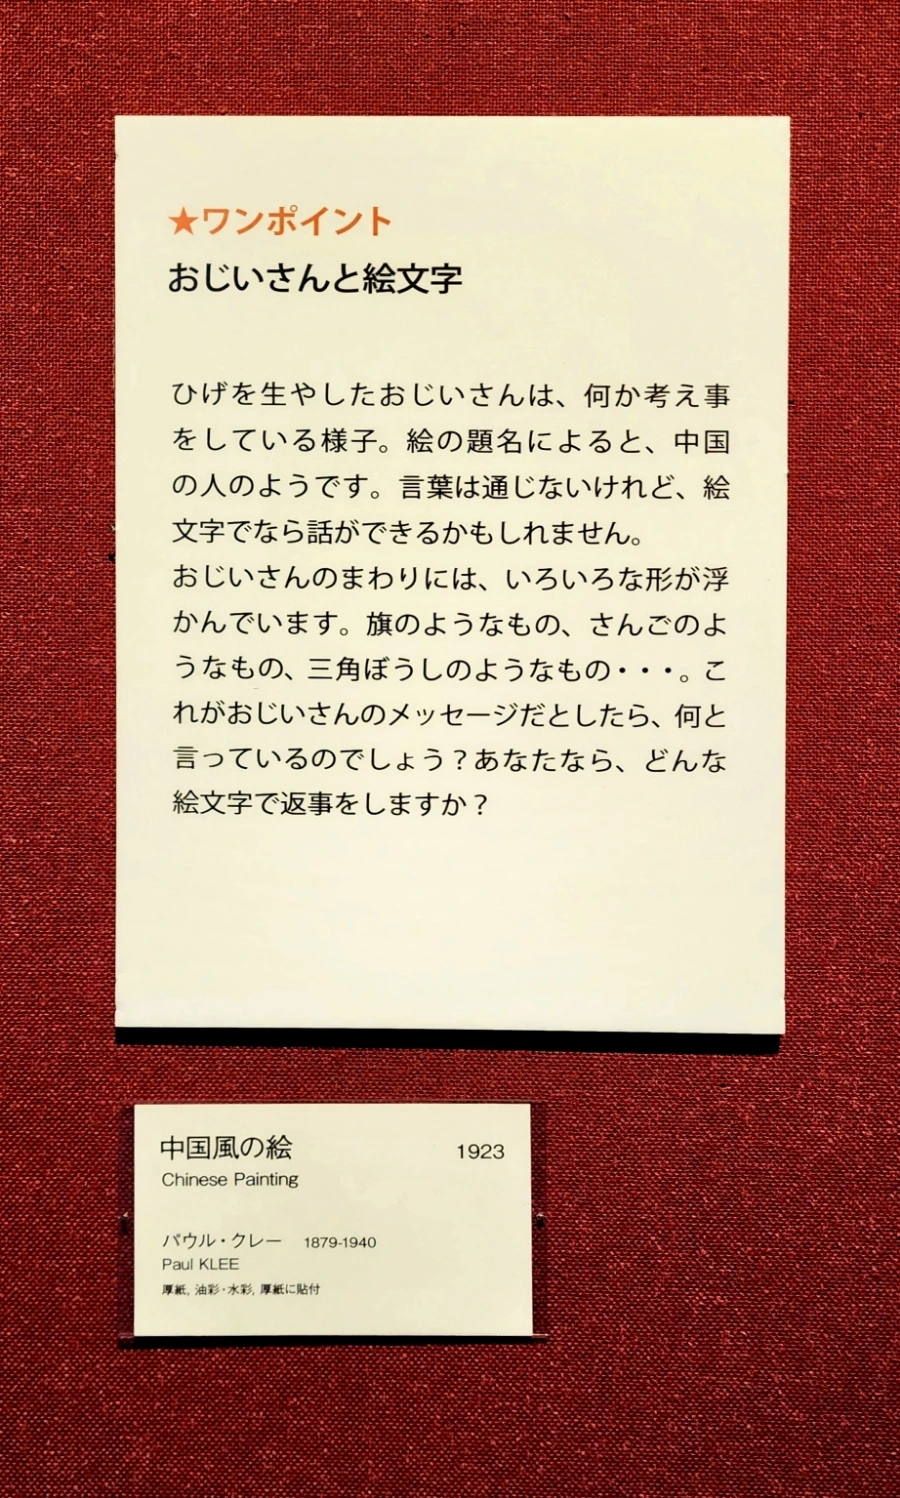 ★ワンポイント
おじいさんと絵文字
ひげを生やしたおじいさんは、何か考え事
をしている様子。絵の題名によると、中国
の人のようです。言葉は通じないけれど、絵
文字でなら話ができるかもしれません。
おじいさんのまわりには、いろいろな形が浮
かんでいます。旗のようなもの、さんごのよ
うなもの、三角ぼうしのようなもの・・・。こ
れがおじいさんのメッセージだとしたら、何と
言っているのでしょう？あなたなら、どんな
絵文字で返事をしますか？
中国風の絵 1923
Chinese Painting
パウル・クレー 1879-1940
Paul KLEE
厚紙, 油彩・水彩, 厚紙に貼付